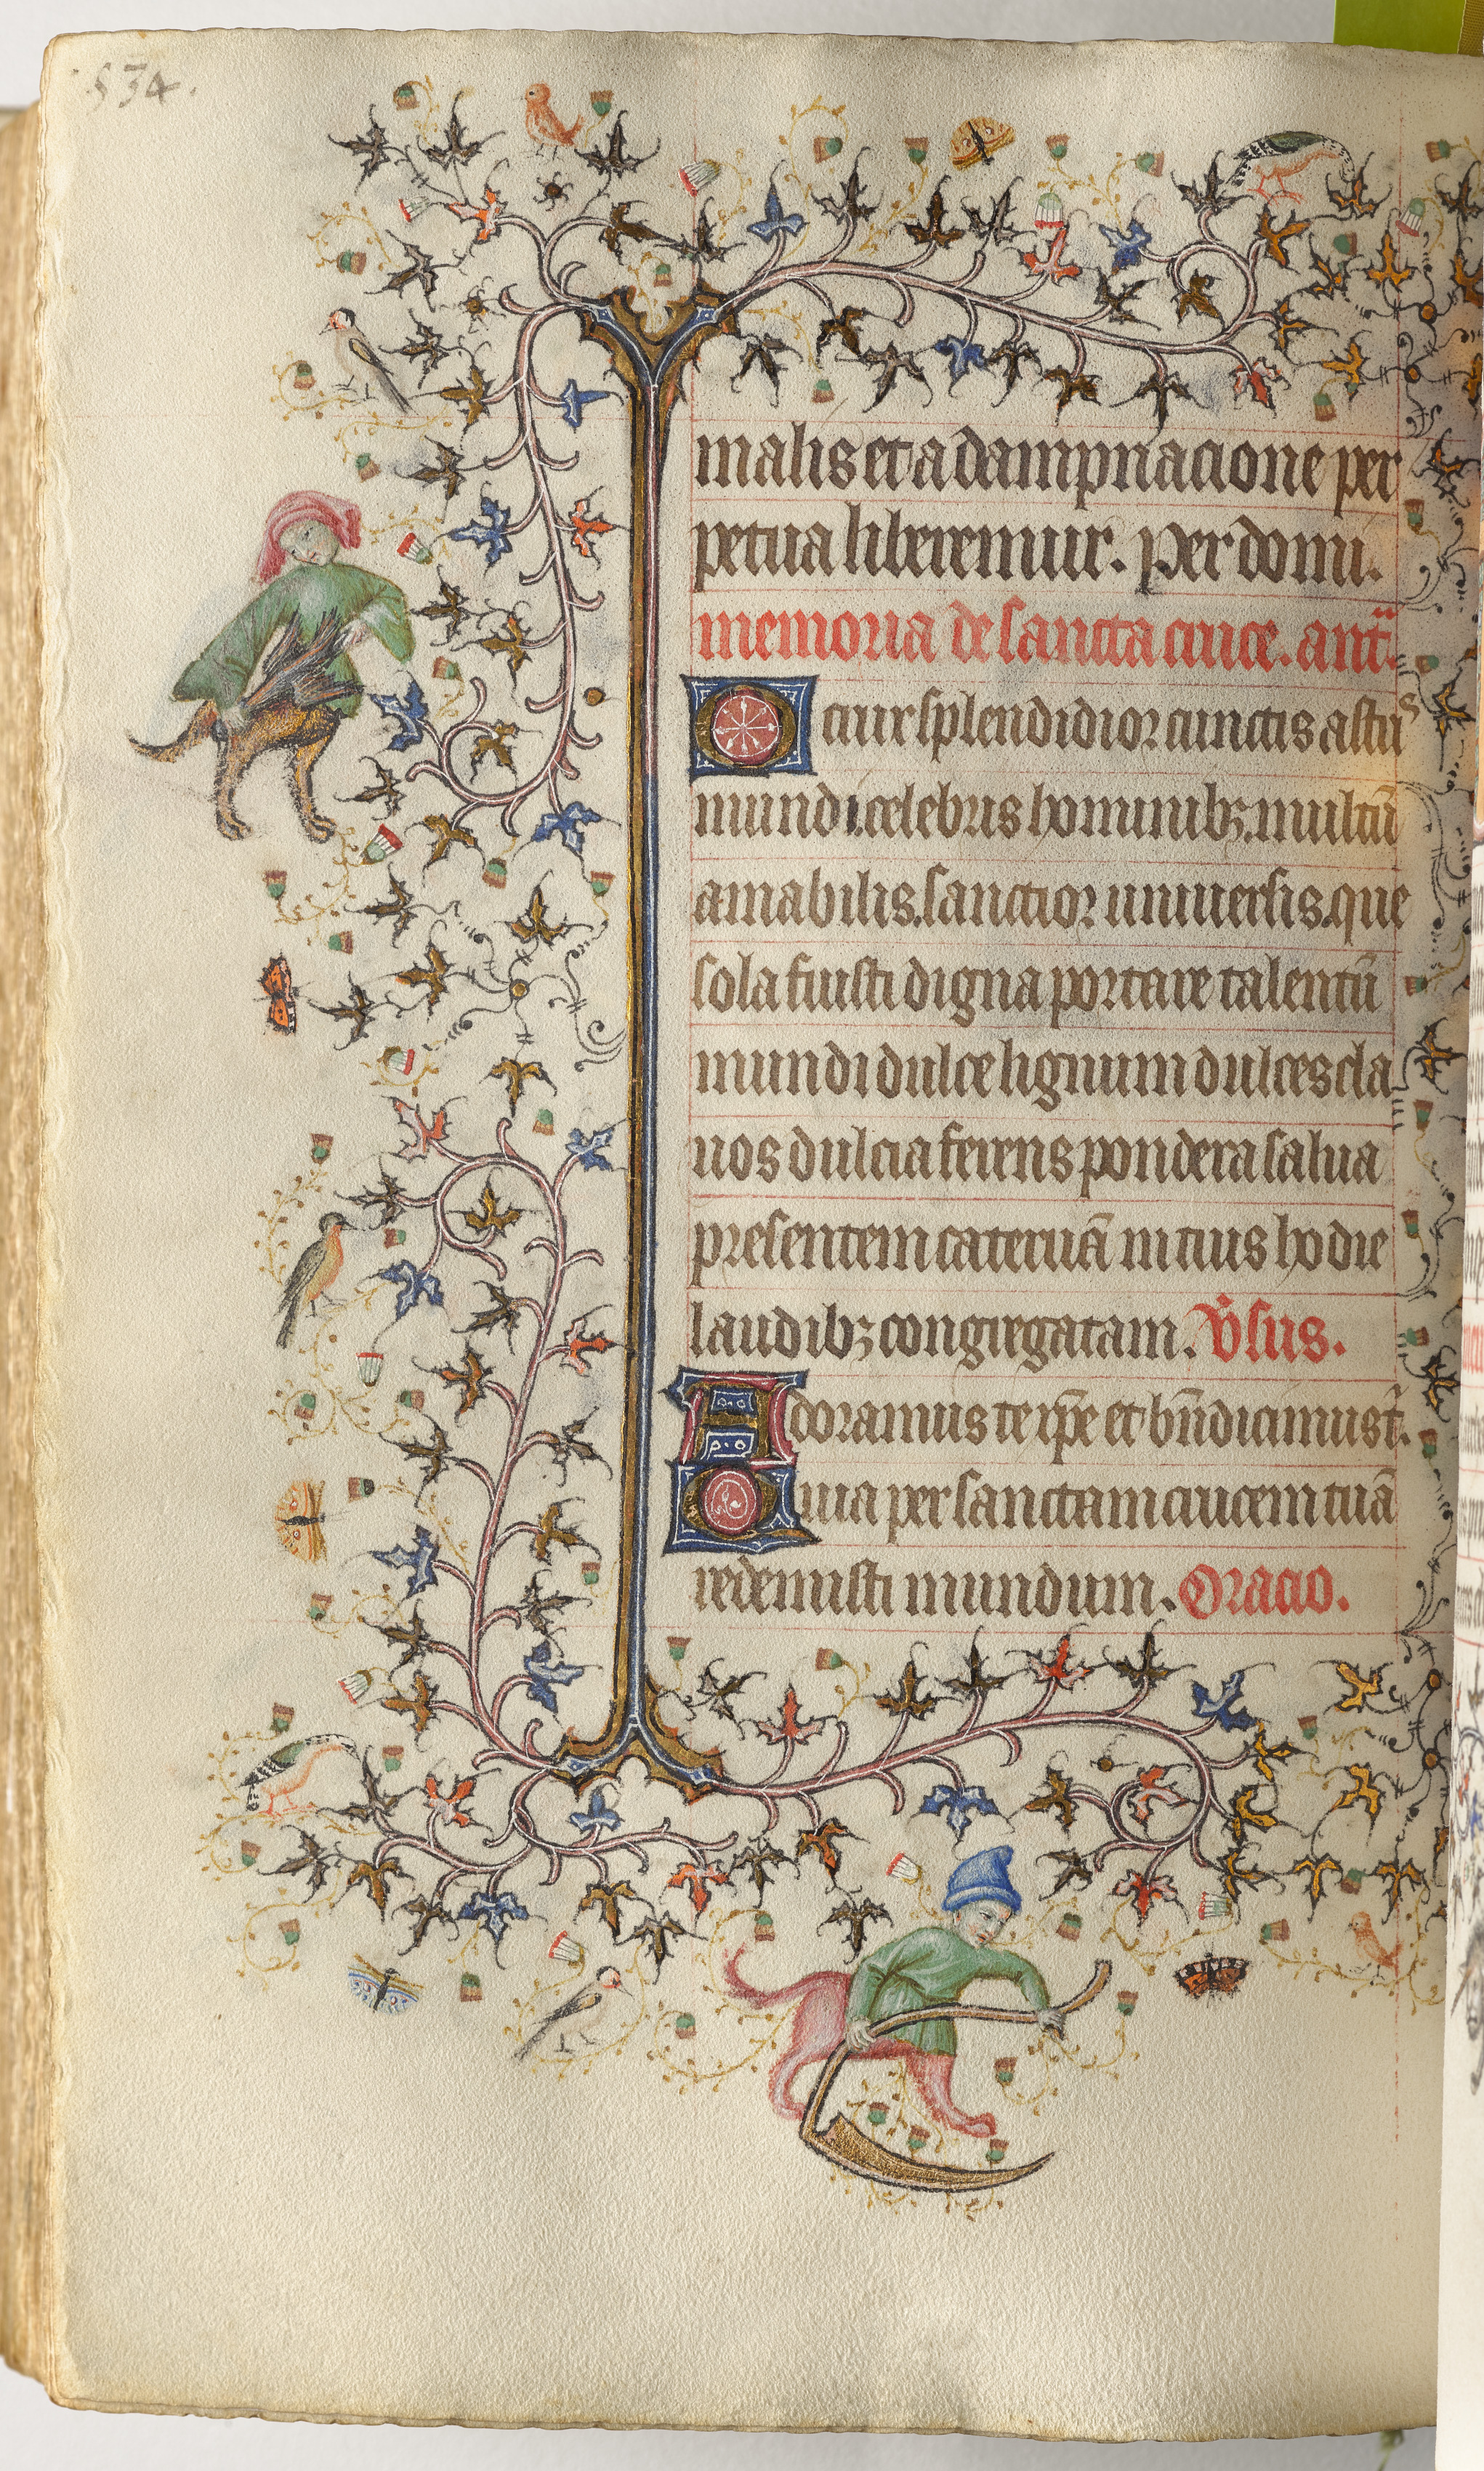 534.
malis et a dampnacione per
petua liberemur. Per domi.
memoria de sancta cruce. ant̄.
O crux splendidior cunctis astris
mundi celebris hominibꝫ multū
amabilis. sanctior uniuersis. que
sola fuisti digna portare talentū
mundi dulce lignum dulces cla
uos dulcia ferens pondera salua
presentem cateruā in tuis hodie
laudibꝫ congregatam. V̄sus.
Adoramus te xp̄e et bn̄dicimus t̄.
Quia per sanctam crucem tuā
redemisti mundum. Oracio.